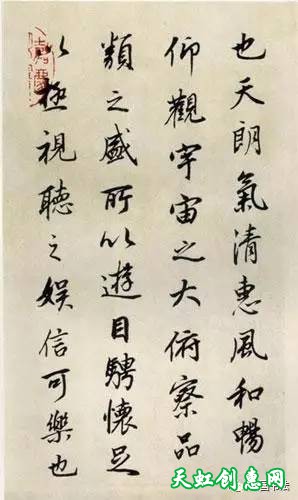 也天朗氣清惠風和暢
仰觀宇宙之大俯察品
類之盛所以遊目騁懷足
以極視聽之娱信可樂也
天虹創惠网
书法